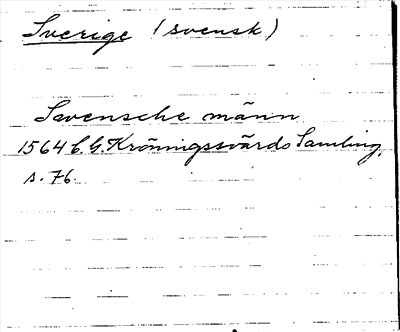 Sverige (svensk)
Svensche männ
1564 C.G. Kröningssvärds Samling,
s. 76.